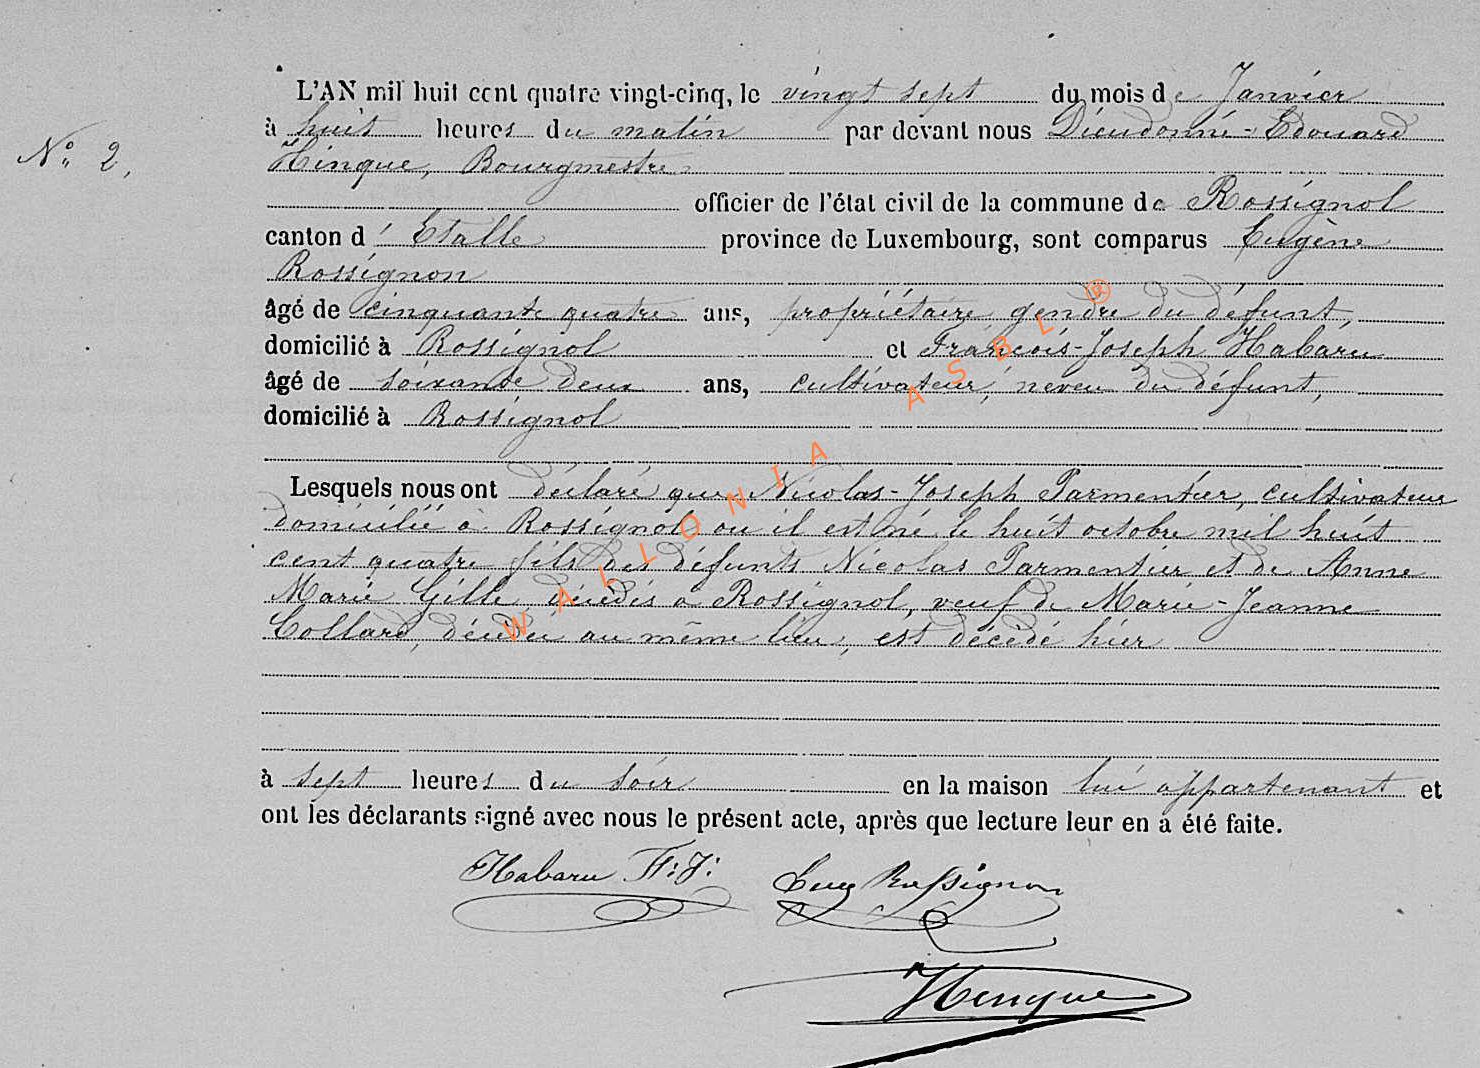 L'AN mil huit cent quatre vingt-cinq, le vingt sept du mois de Janvier
à huit heures du matin par devant nous Dieudonné-Edouard
N° 2.
Hinque, Bourgmestre
officier de l'état civil de la commune de Rossignol
canton d'Etalle province de Luxembourg, sont comparus Eugène
Rossignon
âgé de cinquante quatre ans, propriétaire gendre du défunt,
domicilié à Rossignol et François-Joseph Habaru
âgé de soixante deux ans, cultivateur, neveu du défunt,
domicilié à Rossignol
Lesquels nous ont déclaré que Nicolas-Joseph Parmentier, cultivateur
domicilié à Rossignol où il est né le huit octobre mil huit
cent quatre fils des défunts Nicolas Parmentier et de Anne
Marie Gille décédés à Rossignol, veuf de Marie-Jeanne
Collard, décédée au même lieu, est décédé hier
à sept heures du soir en la maison lui appartenant et
ont les déclarants signé avec nous le présent acte, après que lecture leur en a été faite.
Habaru F: J: Eug Rossignon
Hinque
WALLONIA ASBL ®